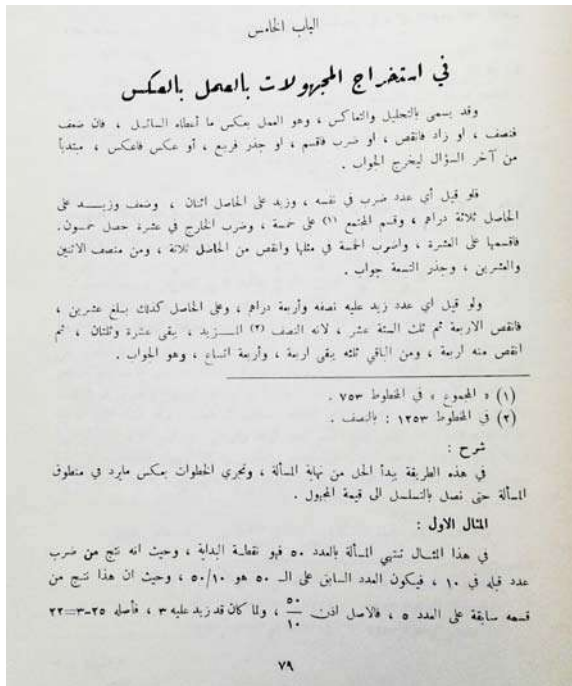 الباب الخامس
في استخراج المجهولات بالعمل بالعكس
وقد يسمى بالتحليل والتعاكس ، وهو العمل بعكس ما أعطاه السائل ، فان ضعف
فنصف ، او زاد فانقص ، او ضرب فاقسم ، او جذر فربع ، أو عكس فاعكس ، مبتدئاً
من آخر السؤال ليخرج الجواب .
فلو قيل أي عدد ضرب في نفسه ، وزيد على الحاصل اثنان ، وضعف وزيد على
الحاصل ثلاثة دراهم ، وقسم المجتمع (١) على خمسة ، وضرب الخارج في عشرة حصل خمسون.
فاقسمها على العشرة ، واضرب الخمسة في مثلها وانقص من الحاصل ثلاثة ، ومن منصف الاثنين
والعشرين ، وجذر التسعة جواب .
ولو قيل أي عدد زيد عليه نصفه وأربعة دراهم ، وعلى الحاصل كذلك بلغ عشرين ،
فانقص الاربعة ثم ثلث الستة عشر ، لانه النصف (٢) المــزيد ، يبقى عشرة وثلثان ، ثم
انقص منه اربعة ، ومن الباقي ثلثه يبقى اربعة ، وأربعة اتساع ، وهو الجواب .
(١) « المجموع » في المخطوط ٧٥٣ .
(٢) في المخطوط ١٢٥٣ : بالنصف .
شرح :
في هذه الطريقة يبدأ الحل من نهاية المسألة ، وتجري الخطوات بعكس مايرد في منطوق
المسألة حتى نصل بالتسلسل الى قيمة المجهول .
المثال الاول :
في هذا المثال تنتهي المسألة بالعدد ٥٠ فهو نقطة البداية ، وحيث انه نتج من ضرب
عدد قبله في ١٠ ، فيكون العدد السابق على الـ ٥٠ هو ٥٠/١٠ ، وحيث ان هذا نتج من
قسمه سابقة على العدد ٥ ، فالاصل اذن ٥٠/١٠ ، ولما كان قد زيد عليه ٣ ، فأصله ٢٥-٣=٢٢
٧٩